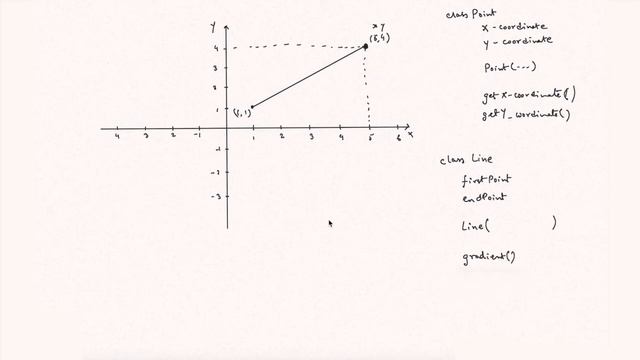 Y
X Y
(5,4)
4
3
2
1
(1,1)
4 3 2 -1 1 2 3 4 5 6 X
-1
-2
-3
class Point
X-coordinate
Y-coordinate
Point(---)
getX-coordinate()
getY_coordinate()
class Line
firstPoint
endPoint
Line( )
gradient()